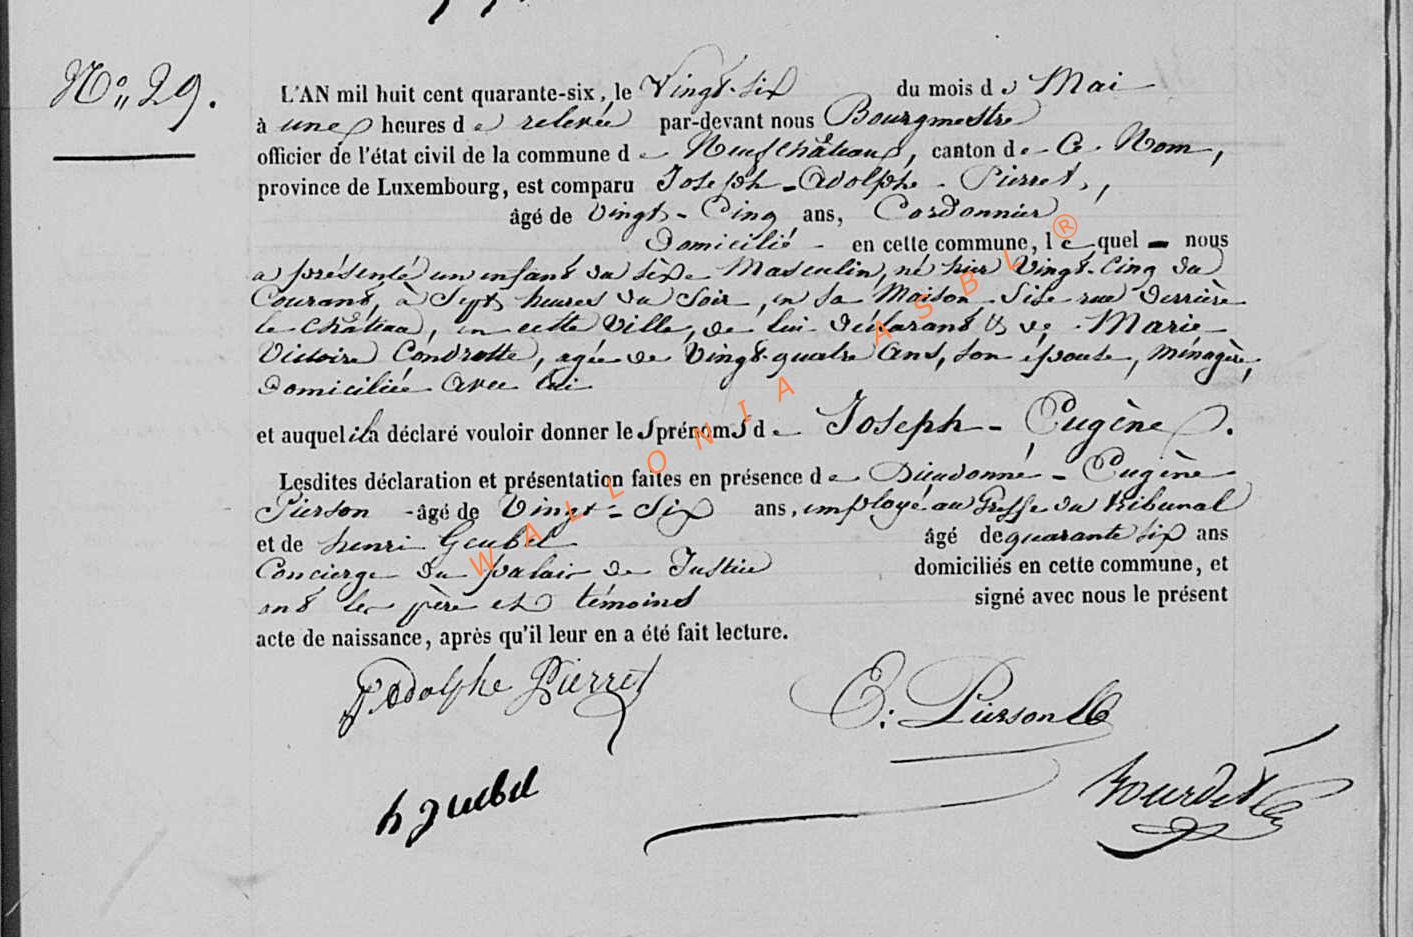 N° 29.
L'AN mil huit cent quarante-six, le Vingt-six du mois de Mai
à une heures de relevée par-devant nous Bourgmestre
officier de l'état civil de la commune de Neufchâteau, canton de Ce Nom,
province de Luxembourg, est comparu Joseph-Adolphe Pierret,
âgé de Vingt-Cinq ans, Cordonnier
Domicilié en cette commune, lequel nous
a présenté un enfant du sèxe Masculin, né hier Vingt-Cinq du
Courant, à Sept heures du Soir, en sa Maison Sise rue derrière
le château, en cette Ville, de lui déclarant & de Marie
Victoire Condrotte, agée de Vingt-quatre Ans, son épouse, ménagère,
Domiciliée Avec lui
et auquel il a déclaré vouloir donner les prénoms de Joseph-Eugène.
Lesdites déclaration et présentation faites en présence de Dieudonné-Eugène
Pierson âgé de Vingt-Six ans, employé au Greffe du tribunal
et de henri Geubel âgé de quarante six ans
Concierge du palais de Justice domiciliés en cette commune, et
ont les père et témoins signé avec nous le présent
acte de naissance, après qu'il leur en a été fait lecture.
Adolphe Pierret
E: Pierson
h geubel
Bourdet
WALLONIA ASBL ®